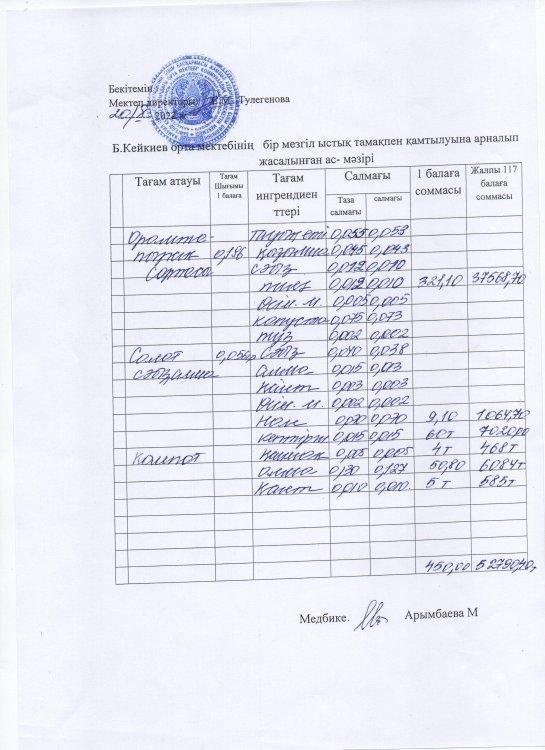 Бекітемін
Мектеп директоры Тулегенова
20/ 2022 ж
Б.Кейкиев орта мектебінің бір мезгіл ыстық тамақпен қамтылуына арналып
жасалынған ас- мәзірі
Тағам атауы Тағам Шығымы 1 балаға Тағам ингрендиен ттері Салмағы 1 балаға соммасы Жалпы 117 балаға соммасы
Таза салмағы салмағы
0,053
0,196 0,045 0,043
сәбіз 0,012 0,010
пияз 0,012 0,010 321,10 37568,70
Өсім. м. 0,005 0,005
капуста 0,075 0,073
тұз 0,002 0,002
Салат сәбіз 0,040 0,038
алма 0,015 0,013
0,003 0,003
Өсім. м 0,002 0,002
Нан 9,10 1064,70
0,015 0,015 60т 7020,00
Компот 0,005 0,005 4т 468т
алма 0,130 0,127 50,80 6084т
Қант 0,010 0,010. 5т 585т
450,00
Медбике. Арымбаева М